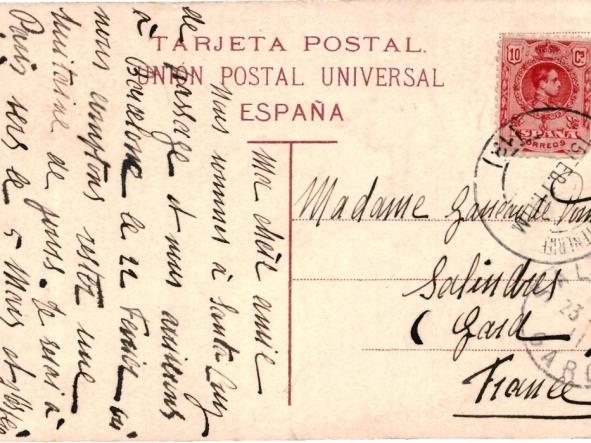 TARJETA POSTAL.
UNIÓN POSTAL UNIVERSAL
ESPAÑA
10 Cs
ESPAÑA
CORREOS
Ma chère amie
Nous sommes à Santa Cruz
de passage et nous arriverons
à Barcelone le 22 Fevrier où
nous comptons rester une
huitaine de jours. Je serai à
Paris vers le 5 Mars et
Madame
Salindres
(Gard
France
15 FEB 11
TENERIFE
SAL
23
11
GARD